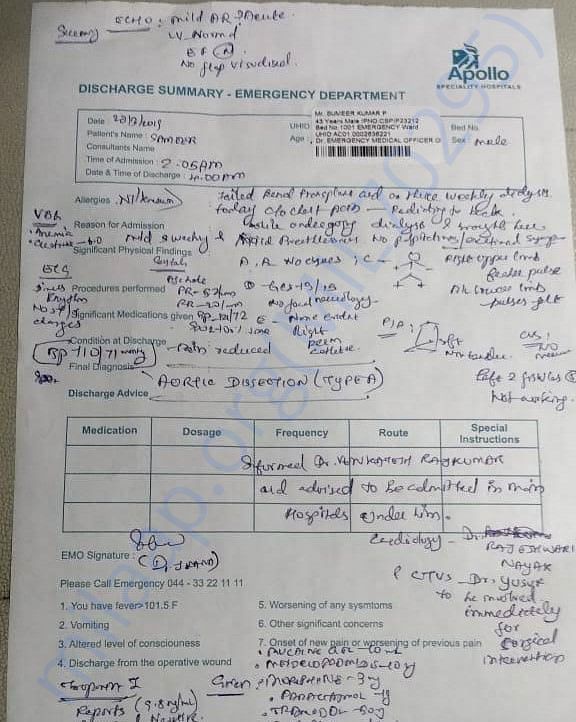 ECHO: mild AR ? Acute.
LV Normal
EF (N)
No flap visualised.
Apollo
SPECIALITY HOSPITALS
DISCHARGE SUMMARY - EMERGENCY DEPARTMENT
Date : 20/2/2019
Patient's Name : SAMEER
Consultants Name
Time of Admission : 2:05AM
Date & Time of Discharge : 4:00pm
Mr. SUMEER KUMAR P
43 Years Male IPNO CSPIP23212
UHID Bed No: 1001 EMERGENCY Ward
UHID AC01 0002636221
Age : Dr. EMERGENCY MEDICAL OFFICER
Bed No.
Sex : male
Allergies Nil known
failed Renal transplant and on thrice weekly dialysis
today c/o chest pain - Radiating to neck.
Reason for Admission while undergoing dialysis & brought here
mild sweaty & Breathlessness No palpitations
Significant Physical Findings
ECG
Sinus Rhythm
No ST/T changes
Procedures performed
Vitals
Afebrile
PR-82/min
RR-22/min
GCS-15/15
No focal neurology
Significant Medications given BP-121/72
Right upper limb
feeble pulse
All lower limb
pulses felt
P/A: soft
Non tender.
CVS:
NO
Condition at Discharge
BP 110/71 mmHg
Pain reduced
Right perm catheter
Left 2 fistulas
Not working.
Final Diagnosis
AORTIC DISSECTION (TYPE A)
Discharge Advice
Medication Dosage Frequency Route Special Instructions
Informed Dr. VENKATESH RAJKUMAR
and advised to be admitted in main
Hospitals under him.
Cardiology - Dr.
RAJESHWARI
NAYAK
EMO Signature :
(Dr. JANANI)
& CTVS - Dr. Yusuf
to be involved
immediately
for
surgical
intervention
Please Call Emergency 044 - 33 22 11 11
1. You have fever>101.5 F
2. Vomiting
3. Altered level of consciouness
4. Discharge from the operated wound
5. Worsening of any sysmtoms
6. Other significant concerns
7. Onset of new pain or worsening of previous pain
Troponin I
Reports (9.8 ng/ml)
Given: • MUCAINE GEL-10ml
• MORPHINE-3mg
• PARACETAMOL-1g
• TRAMADOL-50mg
milaap.org